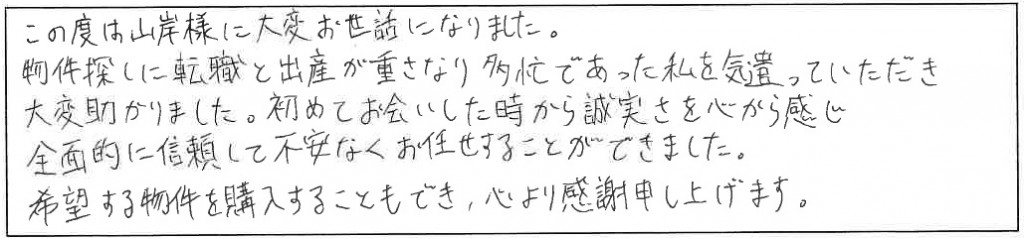 この度は山岸様に大変お世話になりました。
物件探しに転職と出産が重さなり多忙であった私を気遣っていただき
大変助かりました。初めてお会いした時から誠実さを心から感じ
全面的に信頼して不安なくお任せすることができました。
希望する物件を購入することもでき,心より感謝申し上げます。